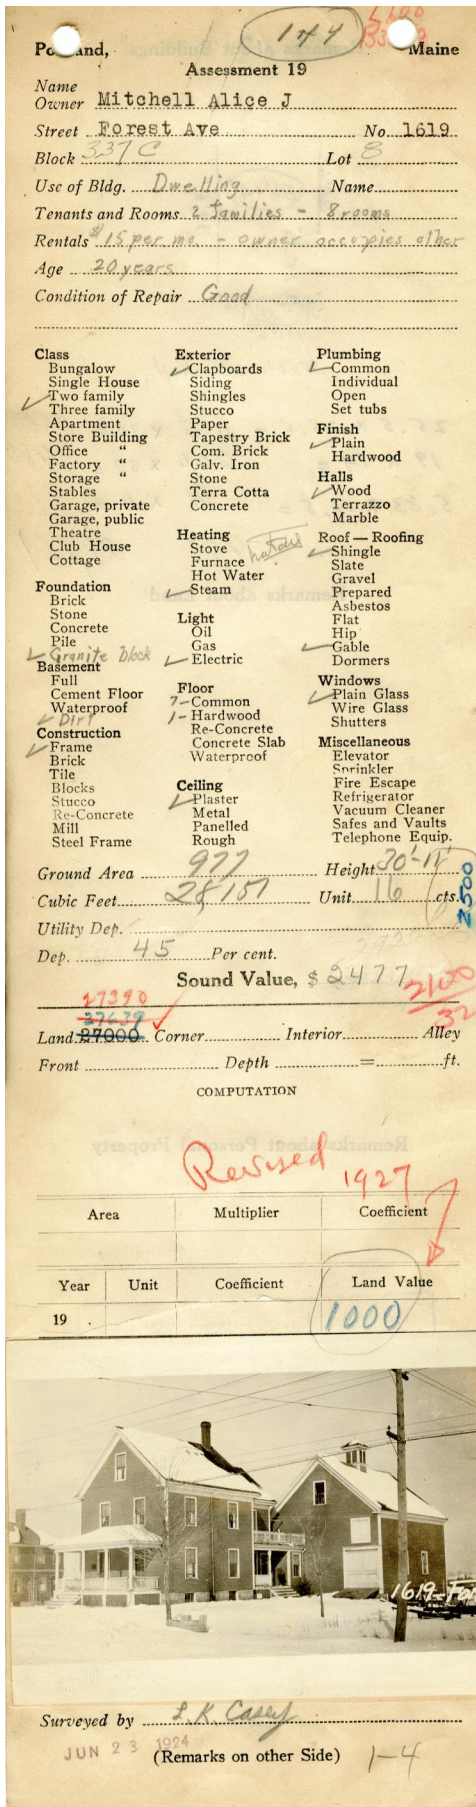 1 + 4
Portland, Maine
Assessment 19
Name
Owner Mitchell Alice J
Street Forest Ave No. 1619
Block 337 C Lot 8
Use of Bldg. Dwelling Name
Tenants and Rooms 2 families - 8 rooms
Rentals $15 per mo. - owner occopies other
Age 20 years
Condition of Repair Good
Class
Bungalow
Single House
✓ Two family
Three family
Apartment
Store Building
Office "
Factory "
Storage "
Stables
Garage, private
Garage, public
Theatre
Club House
Cottage
Foundation
Brick
Stone
Concrete
Pile
✓ Granite block
Basement
Full
Cement Floor
Waterproof
✓ Dirt
Construction
✓ Frame
Brick
Tile
Blocks
Stucco
Re-Concrete
Mill
Steel Frame
Exterior
✓ Clapboards
Siding
Shingles
Stucco
Paper
Tapestry Brick
Com. Brick
Galv. Iron
Stone
Terra Cotta
Concrete
Heating
Stove
Furnace
Hot Water
✓ Steam
Light
Oil
Gas
✓ Electric
Floor
7 - Common
1 - Hardwood
Re-Concrete
Concrete Slab
Waterproof
Ceiling
✓ Plaster
Metal
Panelled
Rough
Plumbing
✓ Common
Individual
Open
Set tubs
Finish
✓ Plain
Hardwood
Halls
✓ Wood
Terrazzo
Marble
Roof — Roofing
✓ Shingle
Slate
Gravel
Prepared
Asbestos
Flat
Hip
✓ Gable
Dormers
Windows
✓ Plain Glass
Wire Glass
Shutters
Miscellaneous
Elevator
Sprinkler
Fire Escape
Refrigerator
Vacuum Cleaner
Safes and Vaults
Telephone Equip.
Ground Area 977 Height 30'-11"
Cubic Feet 28,151 Unit 16 cts.
2500
Utility Dep.
Dep. 45 Per cent.
Sound Value, $ 2477
2100
32
27390
27639
Land 27000 Corner Interior Alley
Front Depth = ft.
COMPUTATION
Revised 1927
Area Multiplier Coefficient
Year Unit Coefficient Land Value
19 1000
1619-Fo
Surveyed by L.K. Casey
JUN 23 1924
(Remarks on other Side) 1-4